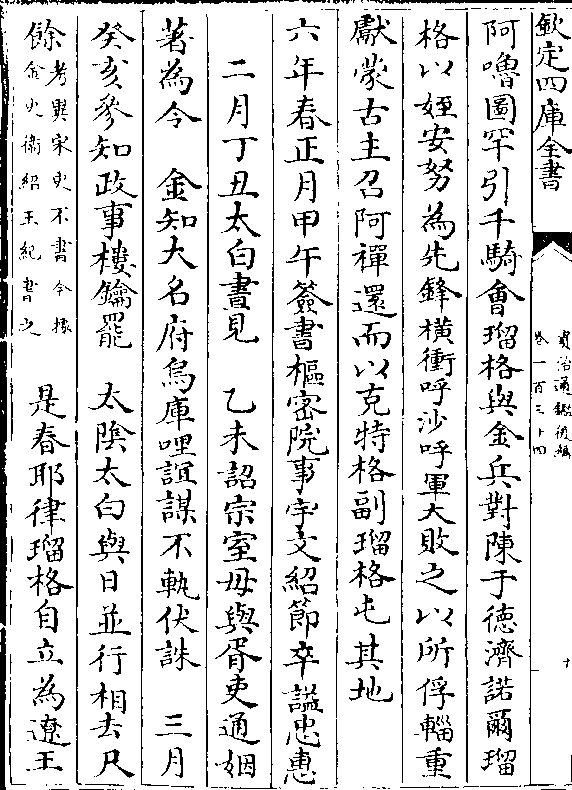 欽定四庫全書
資治通鑑後編
卷一百三十四
十
阿嚕圖罕引千騎會瑠格與金兵對陳于德濟諾爾瑠
格以姪安努為先鋒橫衝呼沙呼軍大敗之以所俘輜重
獻蒙古主召阿禪還而以克特格副瑠格屯其地
六年春正月甲午簽書樞密院事宇文紹節卒諡忠惠
二月丁丑太白晝見　乙未詔宗室毋與胥吏通姻
著為令　金知大名府烏庫哩誼謀不軌伏誅　三月
癸亥參知政事樓鑰罷　太陰太白與日並行相去尺
餘考異宋史不書今據
金史衞紹王紀書之　是春耶律瑠格自立為遼王